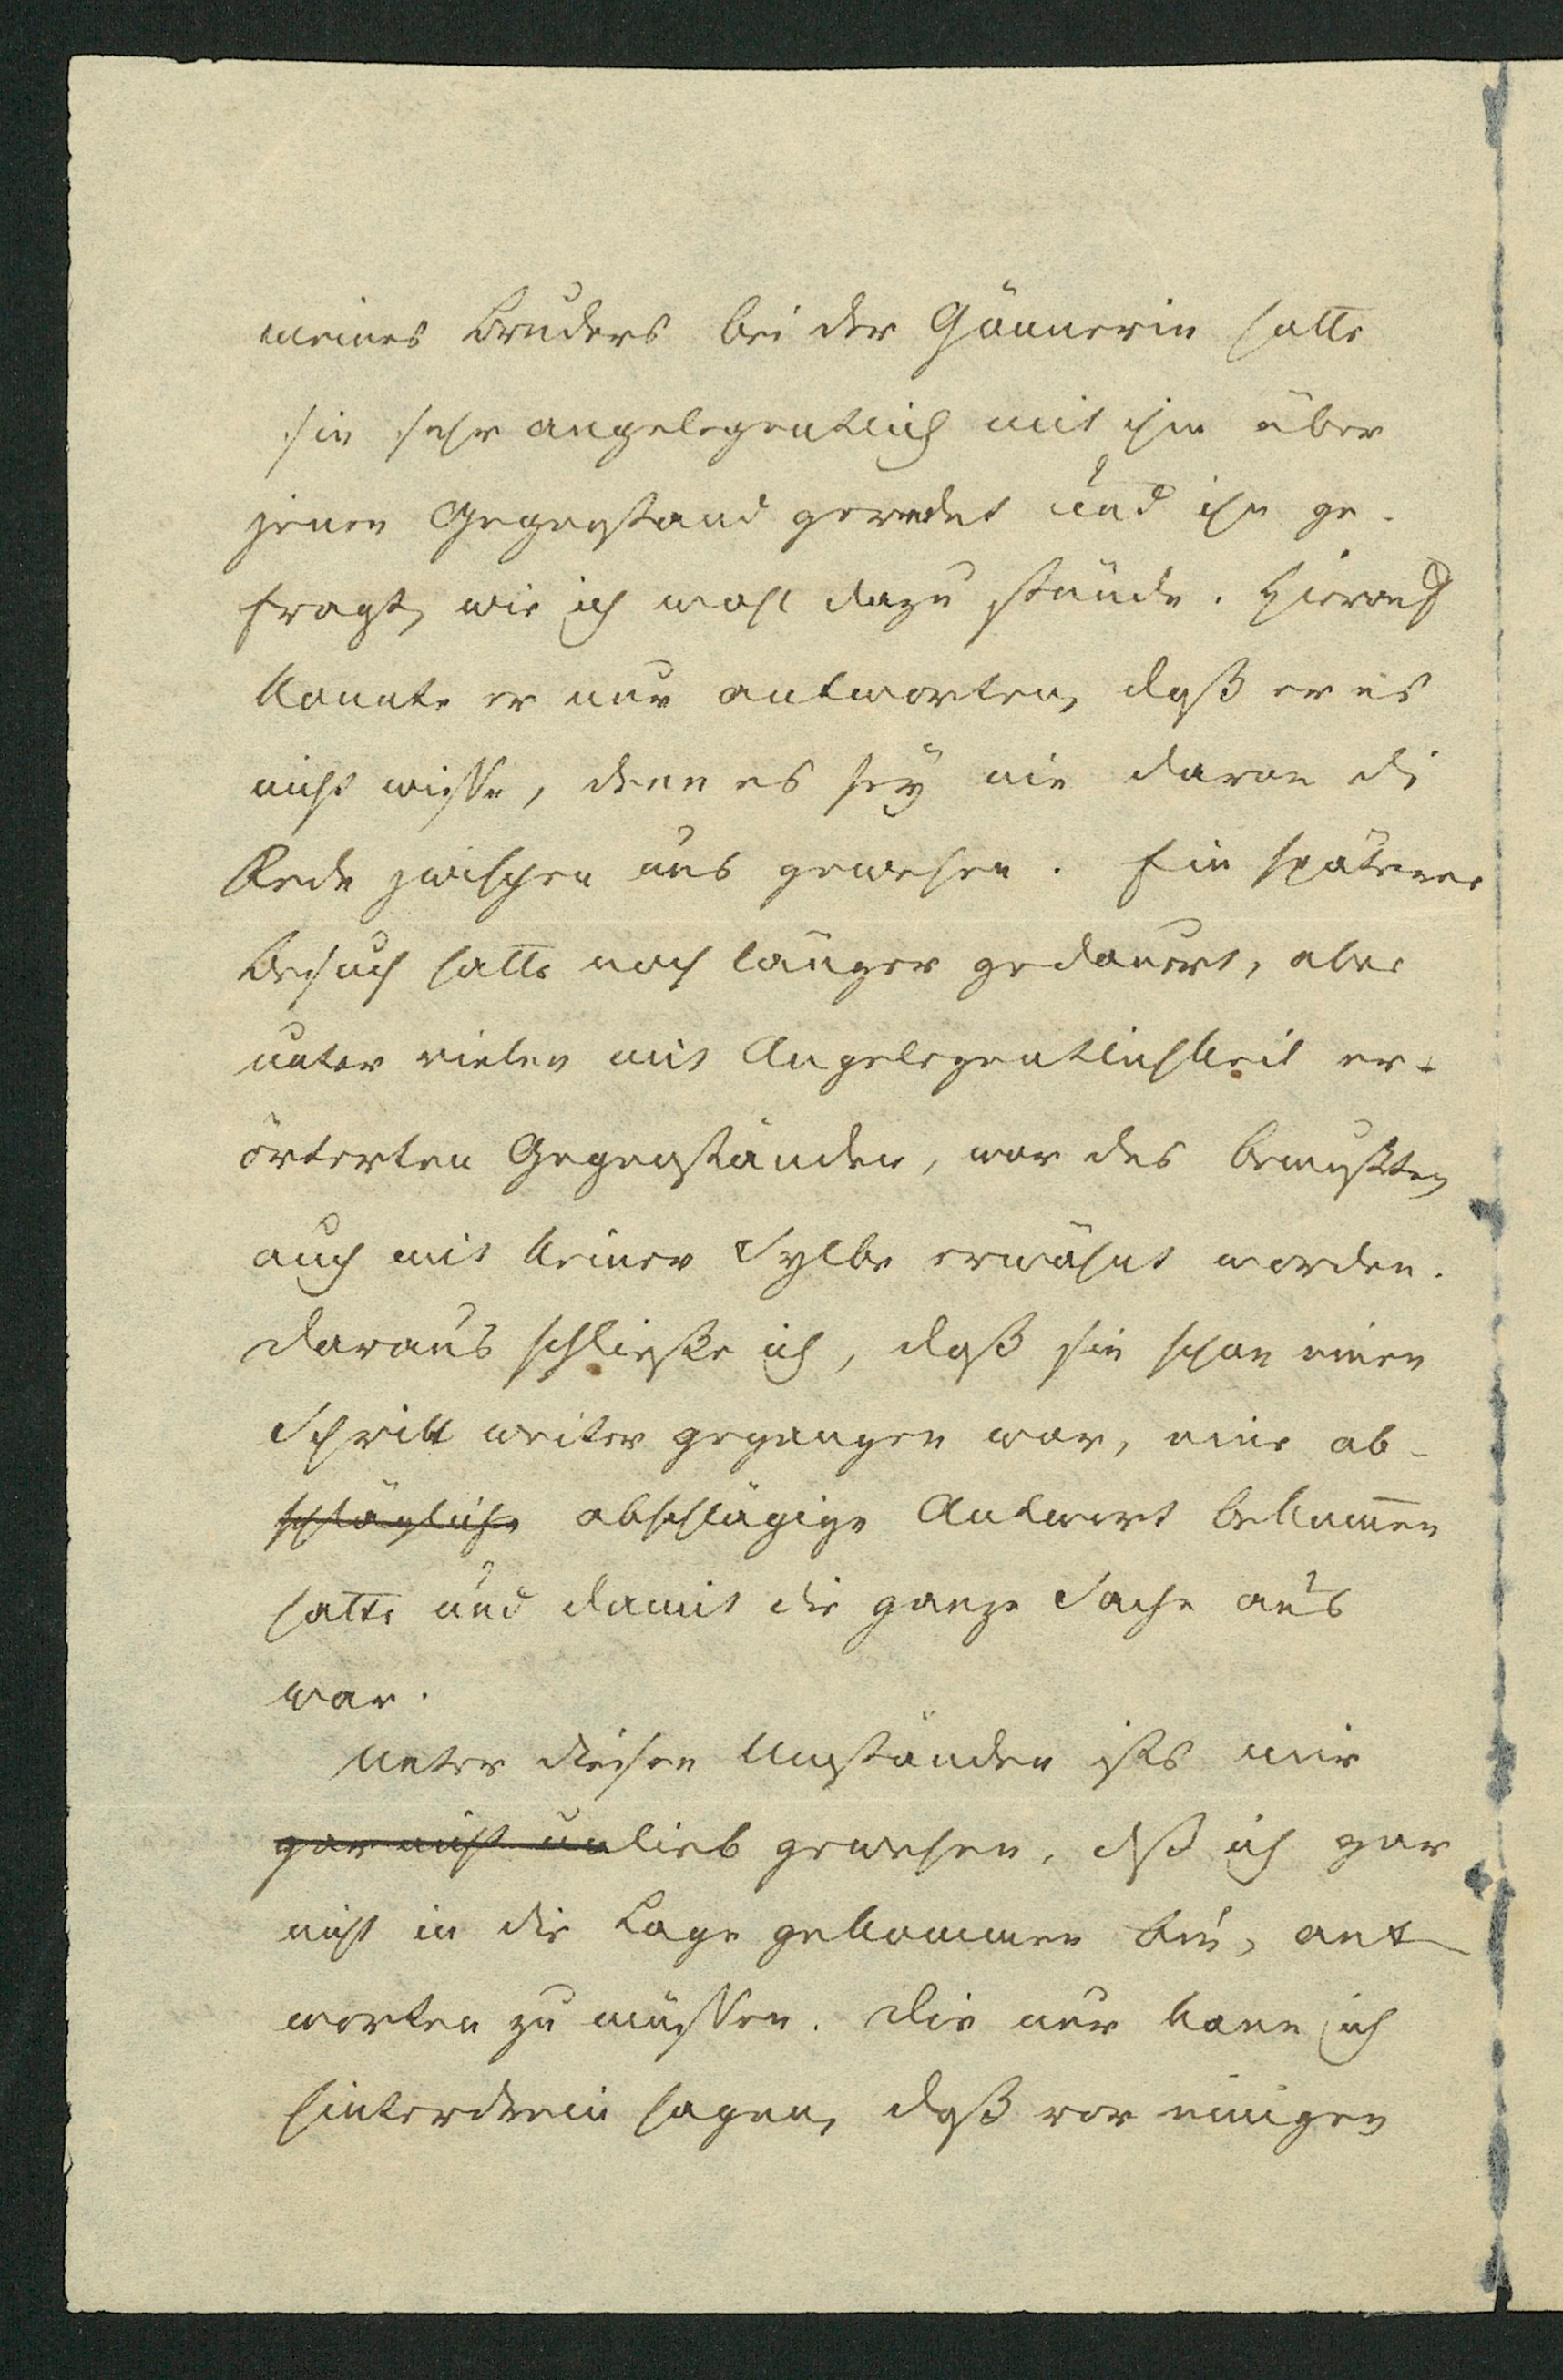 meines Bruders bei der Gönnerin hatte
sie sehr angelegentlich mit ihm über
jenen Gegenstand geredet und ihn ge-
fragt, wie ich wohl dazu stünde. Hierauf
konnte er nur antworten, daß er es
nicht wisse, denn es sey nie davon die
Rede zwischen uns gewesen. Ein späterer
Besuch hatte noch länger gedauert, aber
unter vielen mit Angelegentlichkeit er-
örterten Gegenständen, war des bewußten
auch mit keiner Sylbe erwähnt worden.
Daraus schließe ich, daß sie schon einen
Schritt weiter gegangen war, eine ab-
schlägliche abschlägige Antwort bekommen
hatte und damit die ganze Sache aus
war.
Unter diesen Umständen ists mir
gar nicht unlieb gewesen, daß ich gar
nicht in die Lage gekommen bin, ant-
worten zu müssen. Dir nur kann ich
hinterdrein sagen, daß vor einigen